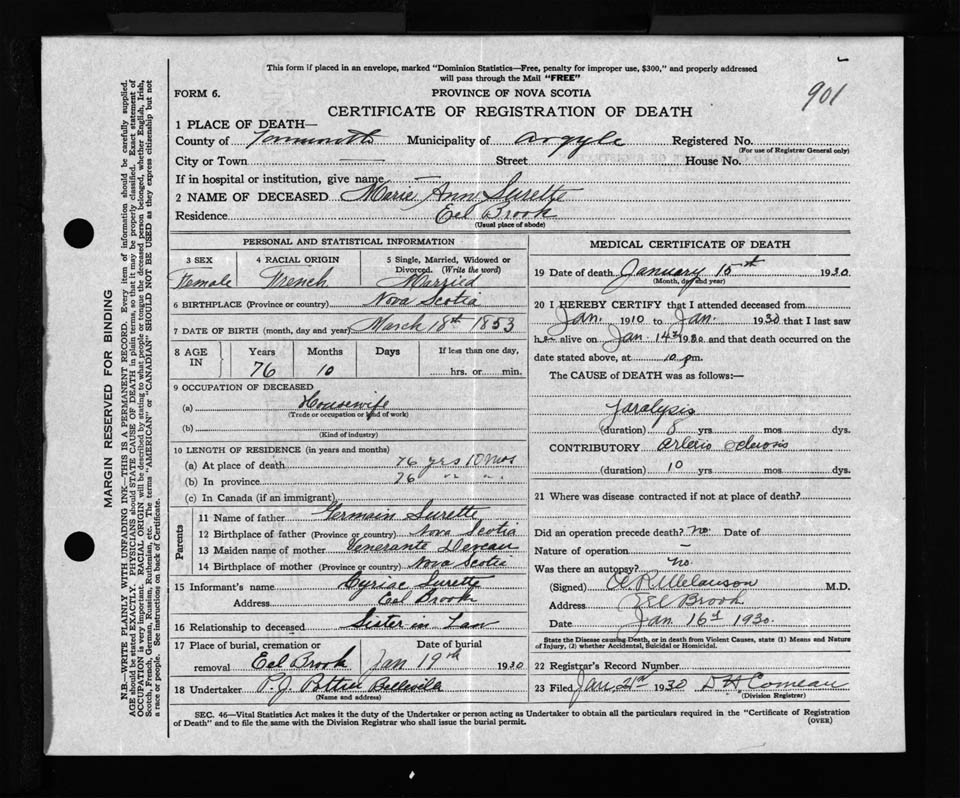 This form if placed in an envelope, marked "Dominion Statistics—Free, penalty for improper use, $300," and properly addressed
will pass through the Mail "FREE"
FORM 6.
PROVINCE OF NOVA SCOTIA
901
CERTIFICATE OF REGISTRATION OF DEATH
1 PLACE OF DEATH—
County of Yarmouth Municipality of Argyle Registered No.
(For use of Registrar General only)
City or Town — Street House No.
If in hospital or institution, give name —
2 NAME OF DECEASED Marie Ann Surette
Residence Eel Brook
(Usual place of abode)
PERSONAL AND STATISTICAL INFORMATION
3 SEX 4 RACIAL ORIGIN 5 Single, Married, Widowed or
Divorced. (Write the word)
Female French Married
6 BIRTHPLACE (Province or country) Nova Scotia
7 DATE OF BIRTH (month, day and year) March 18th 1853
8 AGE IN Years Months Days If less than one day,
76 10 hrs. or min.
9 OCCUPATION OF DECEASED
(a) Housewife
(Trade or occupation or kind of work)
(b)
(Kind of industry)
10 LENGTH OF RESIDENCE (in years and months)
(a) At place of death 76 yrs 10 mos
(b) In province 76 " "
(c) In Canada (if an immigrant)
Parents
11 Name of father Germain Surette
12 Birthplace of father (Province or country) Nova Scotia
13 Maiden name of mother Venerante
14 Birthplace of mother (Province or country) Nova Scotia
15 Informant's name Cyriac Surette
Address Eel Brook
16 Relationship to deceased Sister in Law
17 Place of burial, cremation or Date of burial
removal Eel Brook Jan 19th 1930
18 Undertaker P. J. Pottier Bellville
(Name and address)
MEDICAL CERTIFICATE OF DEATH
19 Date of death January 15th 1930
(Month, day and year)
20 I HEREBY CERTIFY that I attended deceased from
Jan. 1910 to Jan. 1930 that I last saw
her alive on Jan. 14th 1930 and that death occurred on the
date stated above, at 10 pm.
The CAUSE of DEATH was as follows:—
Paralysis
(duration) 8 yrs mos dys.
CONTRIBUTORY Arterio Sclerosis
(duration) 10 yrs mos. dys.
21 Where was disease contracted if not at place of death?
Did an operation precede death? no Date of
Nature of operation —
Was there an autopsy? no.
(Signed) A. R. Melanson M.D.
Address Eel Brook
Date Jan 16th 1930.
State the Disease causing Death, or in death from Violent Causes, state (1) Means and Nature
of Injury, (2) whether Accidental, Suicidal or Homicidal.
22 Registrar's Record Number
23 Filed Jan. 21st 1930 D H Comeau
(Division Registrar)
SEC. 46—Vital Statistics Act makes it the duty of the Undertaker or person acting as Undertaker to obtain all the particulars required in the "Certificate of Registration
of Death" and to file the same with the Division Registrar who shall issue the burial permit.
(OVER)
MARGIN RESERVED FOR BINDING
N.B.—WRITE PLAINLY WITH UNFADING INK—THIS IS A PERMANENT RECORD. Every item of information should be carefully supplied.
AGE should be stated EXACTLY. PHYSICIANS should STATE CAUSE OF DEATH in plain terms, so that it may be properly classified. Exact statement of
OCCUPATION is very important. RACIAL ORIGIN will be described by stating to what people or tongue the deceased person belonged, whether English, Irish,
Scotch, French, German, Russian, Ruthenian, etc. The terms "AMERICAN" or "CANADIAN" SHOULD NOT BE USED as they express citizenship but not
a race or people. See instructions on back of Certificate.